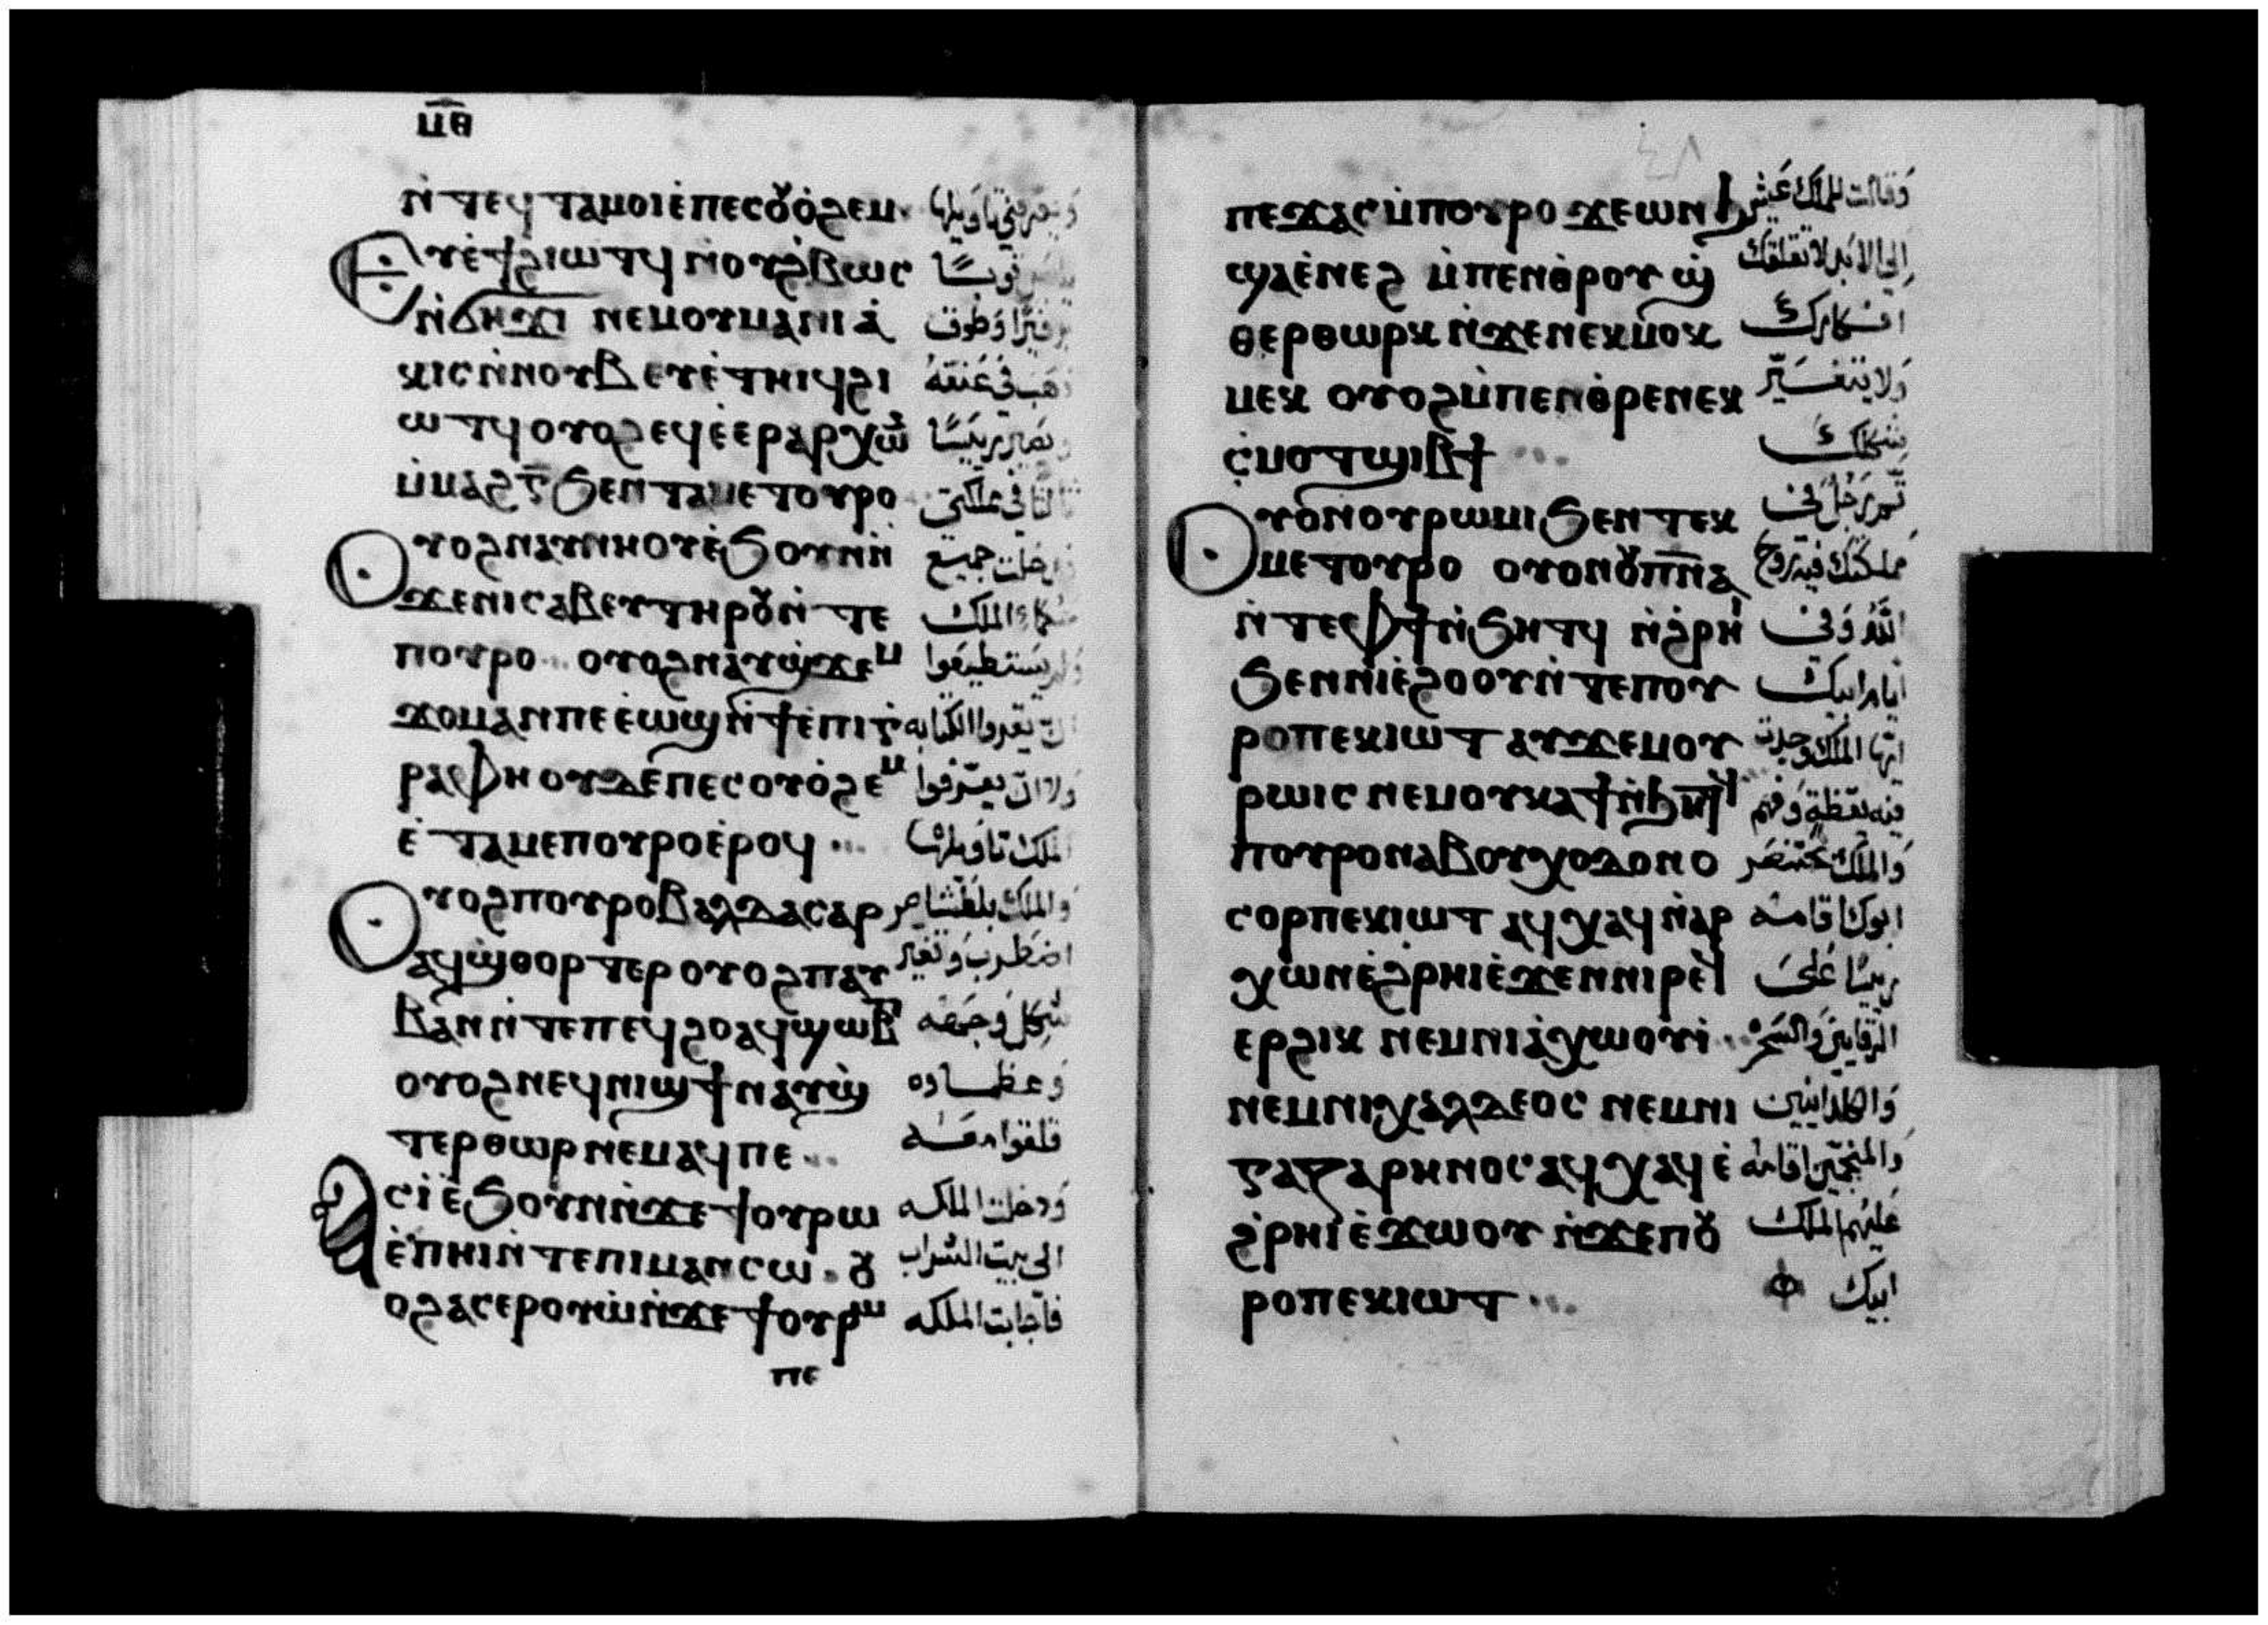 ⲙ̅ⲑ̅
ⲛ̀ⲧⲉϥⲧⲁⲙⲟⲓⲉ̀ⲡⲉⲥⲟⲩⲟ̀ϩⲉⲙ
ⲉⲩⲉ̀ϯϩⲓⲱⲧϥⲛ̀ⲟⲩϩ̀ⲃⲱⲥ
ⲛ̀ϭⲏϫⲓ ⲛⲉⲙⲟⲩⲙⲁⲛⲓⲁ̀
ⲕⲓⲥⲛ̀ⲛⲟⲩⲃ ⲉⲩⲉ̀ⲧⲏⲓϥϩⲓ
ⲱⲧϥⲟⲩⲟϩⲉϥⲉ̀ⲉⲣⲁⲣⲭⲱⲛ
ⲙ̀ⲙⲁϩⲅ̅ϧⲉⲛⲧⲁⲙⲉⲧⲟⲩⲣⲟ
ⲟⲩⲟϩⲛⲁⲩⲛⲏⲟⲩⲉ̀ϧⲟⲩⲛⲛ̀
ϫⲉⲛⲓⲥⲁⲃⲉⲩⲧⲏⲣⲟⲩⲛ̀ⲧⲉ
ⲡⲟⲩⲣⲟ ⲟⲩⲟϩⲛⲁⲩϣ̀ϫⲉⲙ
ϫⲟⲙⲁⲛⲡⲉⲉ̀ⲱϣⲛ̀ϯⲉ̀ⲡⲓⲅ
ⲣⲁⲫⲏⲟⲩⲇⲉⲡⲉⲥⲟⲩⲟ̀ϩⲉⲙ
ⲉ̀ⲧⲁⲙⲉⲡⲟⲩⲣⲟⲉ̀ⲣⲟϥ
ⲟⲩⲟϩⲡⲟⲩⲣⲟⲃⲁⲗⲇⲁⲥⲁⲣ
ⲁϥϣ̀ⲑⲟⲣⲧⲉⲣⲟⲩⲟϩⲡⲁⲩ
ⲃⲁⲛⲛ̀ⲧⲉⲡⲉϥϩⲟⲁϥϣⲱⲃ
ⲟⲩⲟϩⲛⲉϥⲛⲓϣϯⲛⲁⲩϣ̀
ⲧⲉⲣⲑⲱⲣⲛⲉⲙⲁϥⲡⲉ
ⲁⲥⲓ̀ⲉ̀ϧⲟⲩⲛⲛ̀ϫⲉϯⲟⲩⲣⲱ
ⲉ̀ⲡⲏⲓⲛ̀ⲧⲉⲡⲓⲙⲁⲛⲥⲱ ⲟⲩ
ⲟϩⲁⲥⲉⲣⲟⲩⲱ̀ⲛ̀ϫⲉϯⲟⲩⲣⲱ
ⲡⲉ
بوسًا
جميع
الملك
يستطيعوا
ان يقروا الكتابه
ولا ان يعترفوا
والملك بلطشاصر
اضطرب وتغير
شكل وجهه
وعظماه
قلقوا معه
ودخلت الملكه
الى بيت الشراب
فاجابت الملكه
ⲡⲉϫⲁⲥⲙ̀ⲡⲟⲩⲣⲟ ϫⲉⲱⲛϧ
ϣⲁⲉ̀ⲛⲉϩ ⲙ̀ⲡⲉⲛⲑ̀ⲣⲟⲩϣ̀
ⲑⲉⲣⲑⲱⲣⲕ ⲛ̀ϫⲉⲛⲉⲕⲙⲟⲕ
ⲙⲉⲕ ⲟⲩⲟϩⲙ̀ⲡⲉⲛⲑ̀ⲣⲉⲛⲉⲕ
ⲥ̀ⲙⲟⲧϣⲓⲃϯ
ⲟⲩⲟⲛⲟⲩⲣⲱⲙⲓϧⲉⲛⲧⲉⲕ
ⲙⲉⲧⲟⲩⲣⲟ ⲟⲩⲟⲛⲟⲩⲡ̅ⲛ̅ⲁ̅
ⲛ̀ⲧⲉⲫϯⲛ̀ϧⲏⲧϥ ⲛ̀ϩ̀ⲣⲏⲓ
ϧⲉⲛⲛⲓⲉ̀ϩⲟⲟⲩⲛ̀ⲧⲉⲡⲟⲩ
ⲣⲟⲡⲉⲕⲓⲱⲧ ⲁⲩϫⲉⲙⲟⲩ
ⲣⲱⲓⲥ ⲛⲉⲙⲟⲩⲕⲁϯⲛ̀ϧⲏⲧϥ
ⲡⲟⲩⲣⲟⲛⲁⲃⲟⲩⲭⲟⲇⲟⲛⲟ
ⲥⲟⲣⲡⲉⲕⲓⲱⲧ ⲁϥⲭⲁϥⲛ̀ⲁⲣ
ⲭⲱⲛⲉ̀ϩⲣⲏⲓⲉ̀ϫⲉⲛⲛⲓⲣⲉϥ
ⲉⲣϩⲓⲕ ⲛⲉⲙⲛⲓⲁ̀ⲭⲱⲟⲩⲓ̀
ⲛⲉⲙⲛⲓⲭⲁⲗⲇⲉⲟⲥ ⲛⲉⲙⲛⲓ
ⲅⲁⲍⲁⲣⲏⲛⲟⲥⲁϥⲭⲁϥⲉ̀
ϩ̀ⲣⲏⲓⲉ̀ϫⲱⲟⲩ ⲛ̀ϫⲉⲡⲟⲩ
ⲣⲟⲡⲉⲕⲓⲱⲧ
وقالت للملك عيش
الى الابد لا تقلقك
افكارك
ولا يتغير
شكلك
ثم رجل في
مملكتك فيه روح
الله وفي
ايام ابيك
ايها الملك وجدت
فيه يقظة وفهم
والملك بختنصر
ابوك اقامه
ريسًا على
والكلدانيين
والمنجمين اقامه
عليهم الملك
ابيك